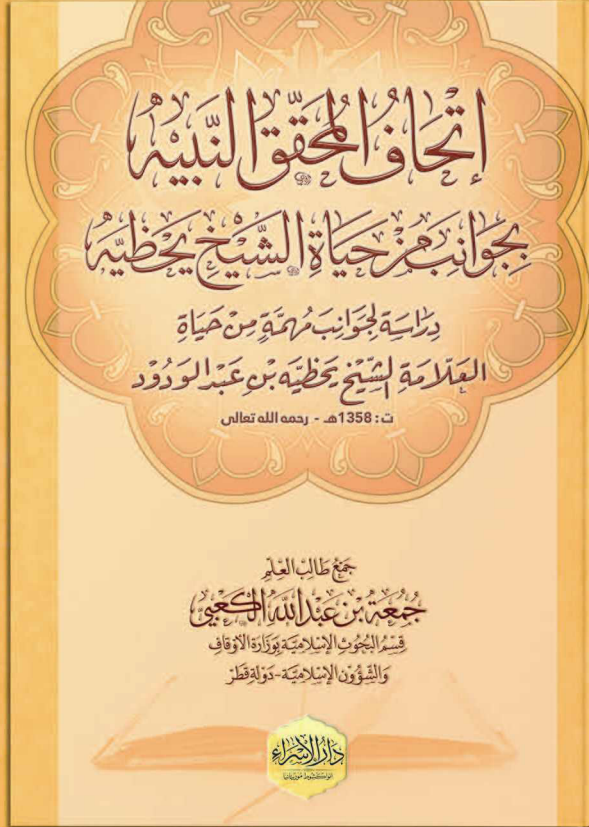 إتحاف المحقق النبيه
بجوانب من حياة الشيخ يحظيه
دراسة لجوانب مهمة من حياة
العلامة الشيخ يحظيه بن عبد الودود
ت: 1358هـ - رحمه الله تعالى
جمع طالب العلم
جمعة بن عبد الله الكعبي
قسم البحوث الإسلامية بوزارة الأوقاف
والشؤون الإسلامية - دولة قطر
دار الإسراء
انواكشوط موريتانيا